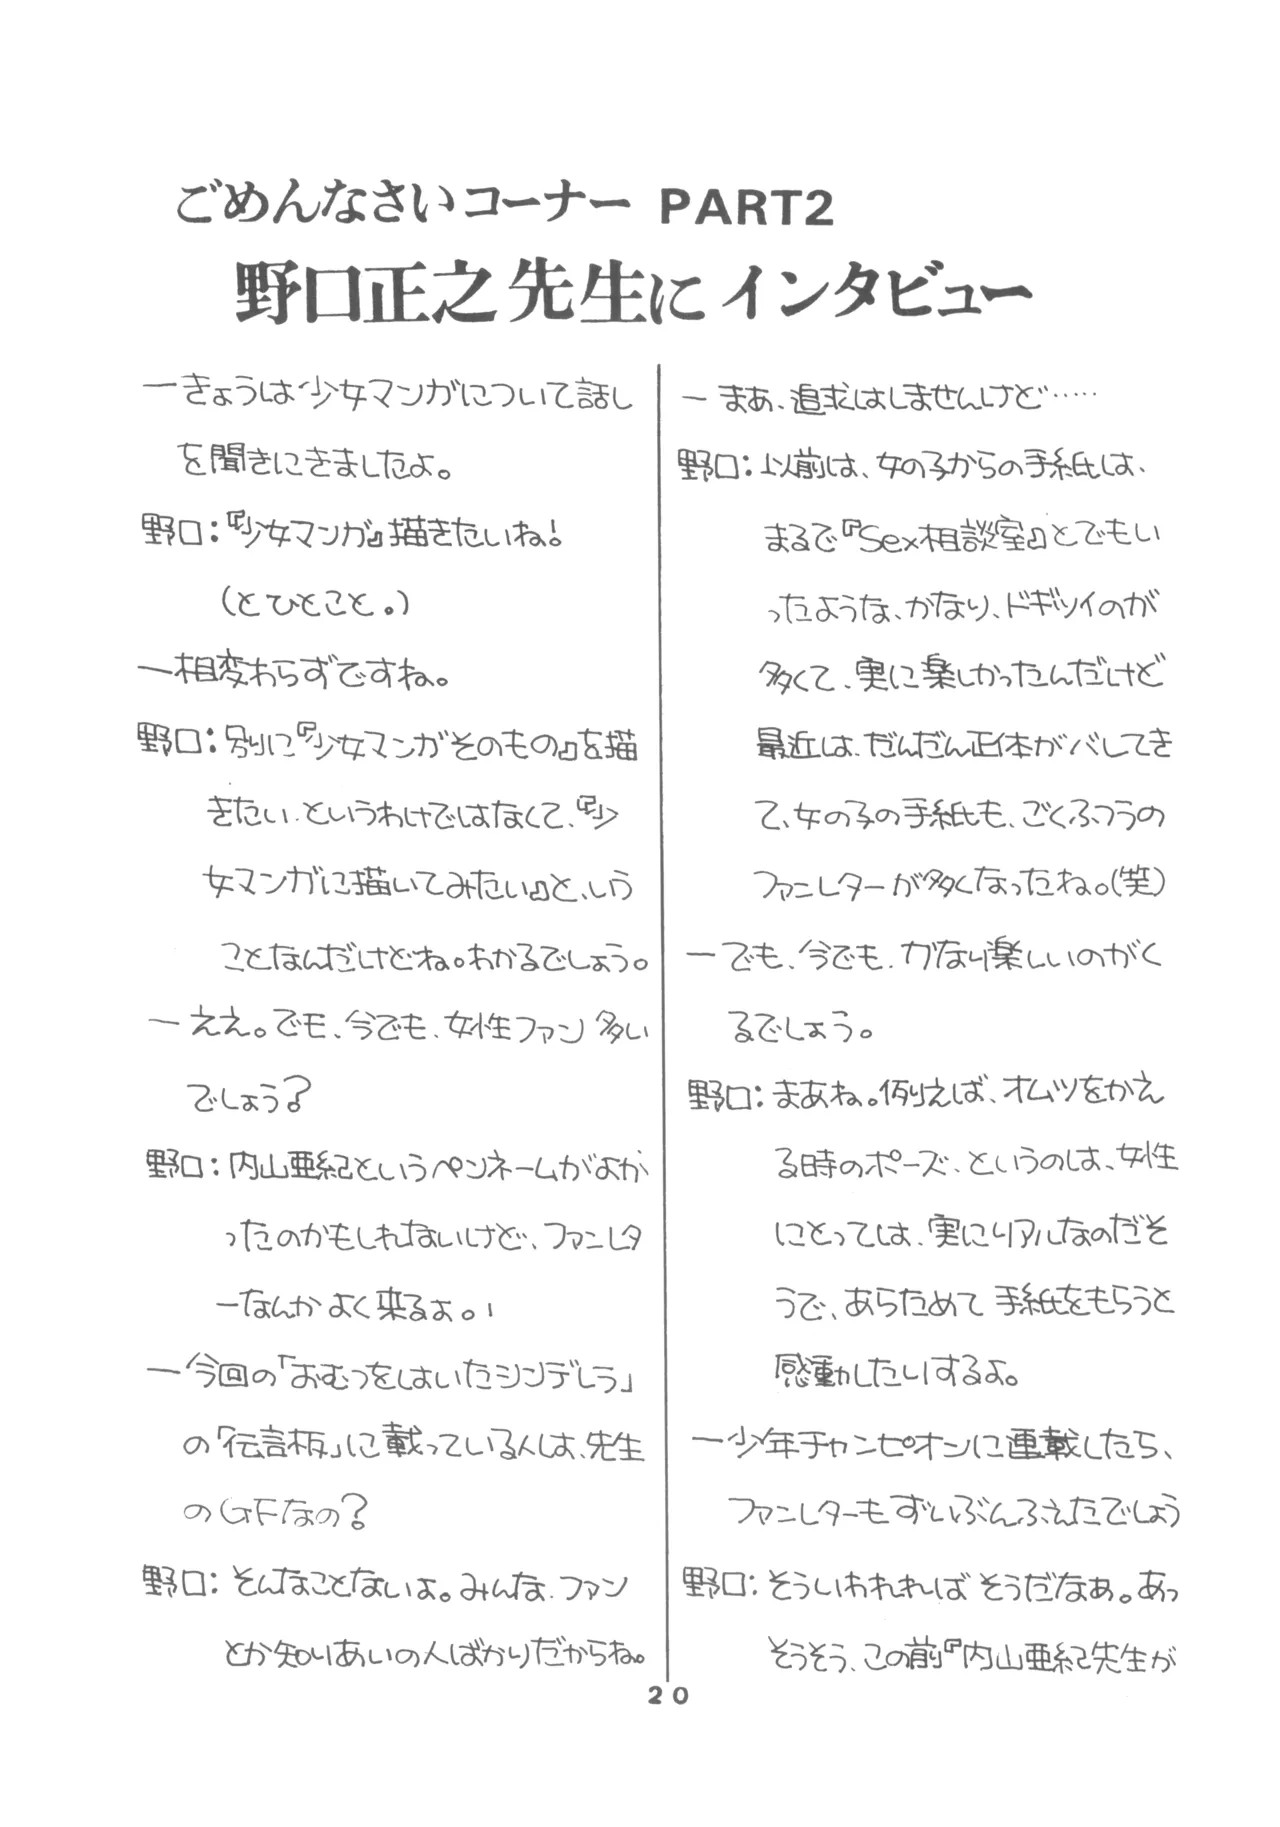 ごめんなさいコーナー PART2
野口正之先生にインタビュー
ーきょうは少女マンガについて話し
を聞きにきましたよ。
野口：『少女マンガ』描きたいね！
（とひとこと。）
ー相変わらずですね。
野口：別に『少女マンガそのもの』を描
きたい、というわけではなくて、『少
女マンガに描いてみたい』と、いう
ことなんだけどね。わかるでしょう。
ーええ。でモ、今でも、女性ファン多い
でしょう？
野口：内山亜紀というペンネームがよか
ったのかもしれないけど、ファンレタ
ーなんかよく来るよ。
ー今回の「おむつをはいたシンデレラ」
の「伝言板」に載っている人は、先生
のGFなの？
野口：そんなことないよ。みんな、ファン
とか知りあいの人ばかりだからね。
ーまあ、追求はしませんけど……
野口：以前は、女の子からの手紙は、
まるで『Sex相談室』とでもい
ったような、かなり、ドギツイのが
多くて、実に楽しかったんだけど
最近は、だんだん正体がバレてき
て、女の子の手紙も、ごくふつうの
ファンレターが多くなったね。（笑）
ーでも、今でも、かなり楽しいのがく
るでしょう。
野口：まあね。例えば、オムツをかえ
る時のポーズ、というのは、女性
にとっては、実にリアルなのだそ
うで、あらためて手紙をもらうと
感動したいするよ。
ー少年チャンピオンに連載したら、
ファンレターもずいぶんふえたでしょう
野口：そういわれればそうだなぁ。あっ
そうそう、この前『内山亜紀先生が
20